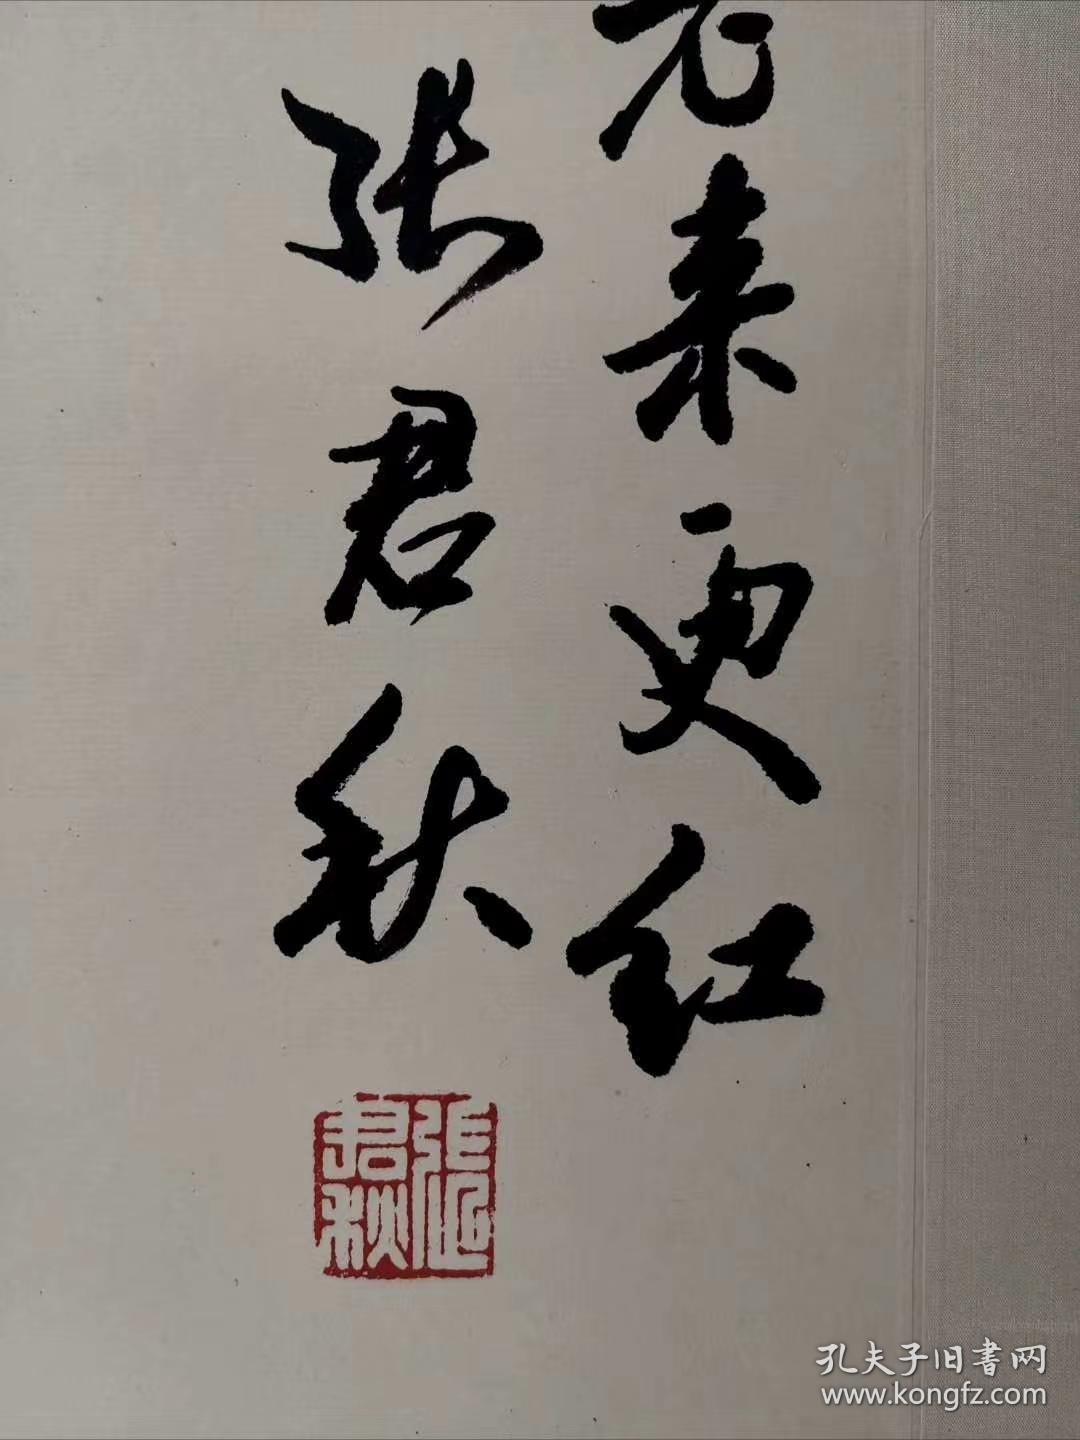 老来更红
张君秋
張君秋
孔夫子旧書网
www.kongfz.com